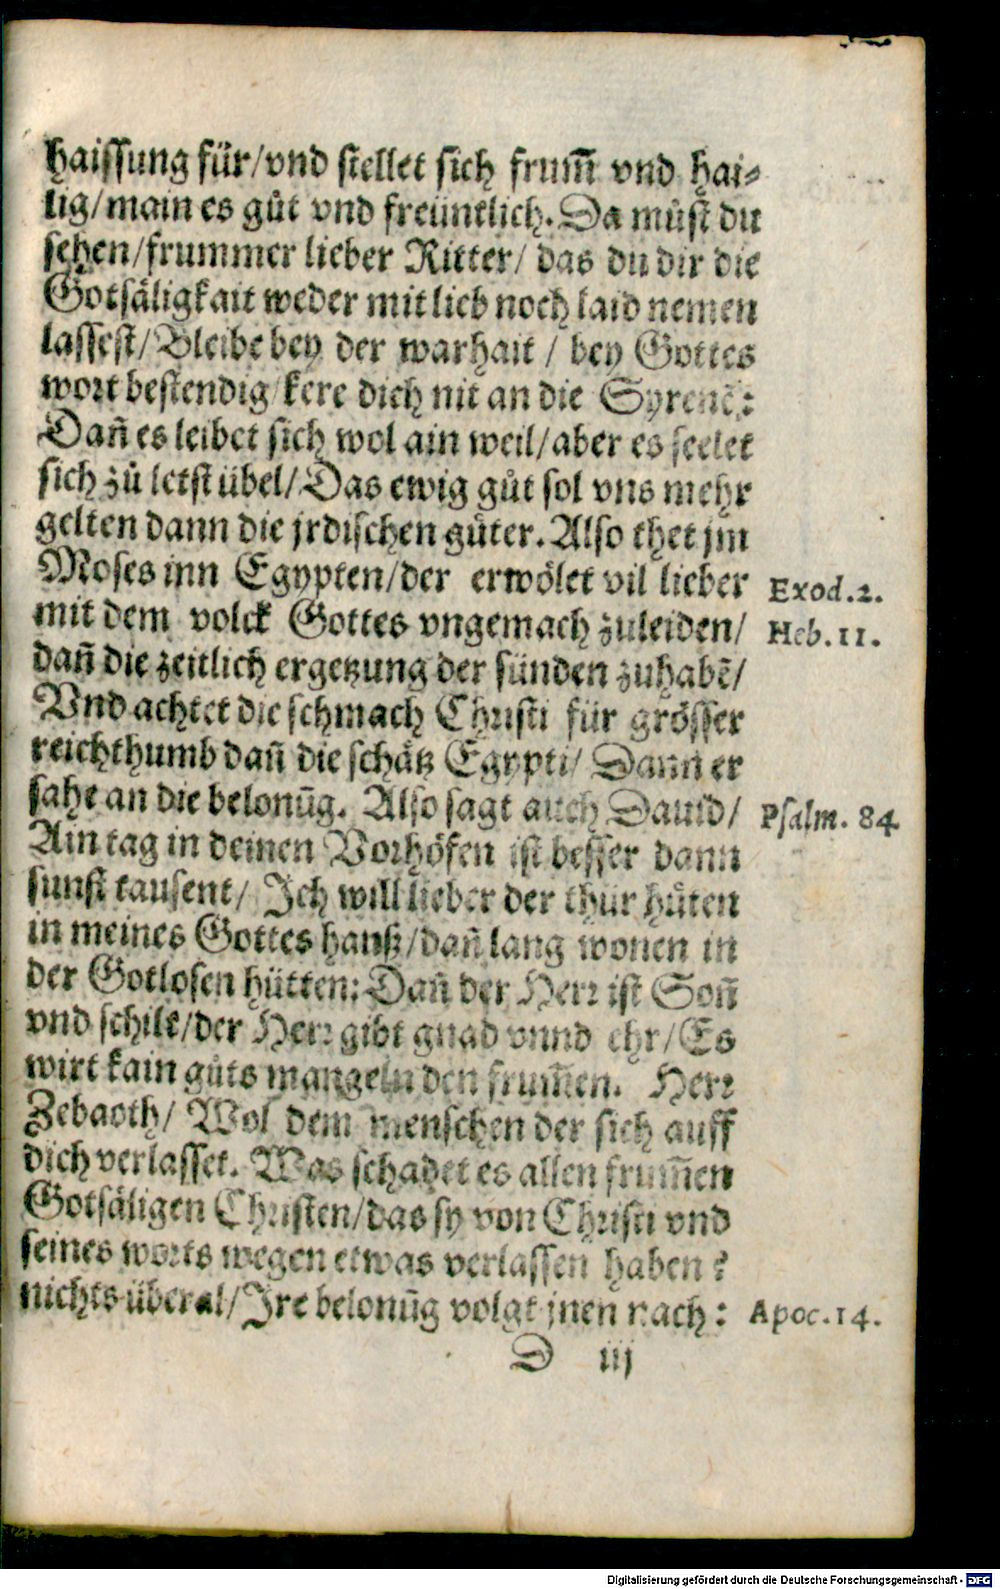 haissung für/vnd stellet sich frum̃ vnd hai⸗
lig/main es gůt vnd freüntlich. Da můst du
sehen/frummer lieber Ritter/ das du dir die
Gotsäligkait weder mit lieb noch laid nemen
lassest/Bleibe bey der warhait / bey Gottes
wort bestendig/kere dich nit an die Syrenẽ:
Dañ es leibet sich wol ain weil/aber es seelet
sich zů letst übel/Das ewig gůt sol vns mehr
gelten dann die jrdischen gůter. Also thet jm
Moses inn Egypten/der erwölet vil lieber
Exod.2.
mit dem volck Gottes vngemach zuleiden/
Heb.11.
dañ die zeitlich ergetzung der sünden zuhabẽ/
Vnd achtet die schmach Christi für grösser
reichthumb dañ die schätz Egypti/ Dann er
sahe an die belonũg. Also sagt auch Dauid/
Psalm. 84
Ain tag in deinen Vorhöfen ist besser dann
sunst tausent/ Jch will lieber der thür hůten
in meines Gottes hauß/dañ lang wonen in
der Gotlosen hütten: Dañ der Herr ist Soñ
vnd schilt/der Herr gibt gnad vnnd ehr/Es
wirt kain gůts mangeln den frum̃en. Herr
Zebaoth/ Wol dem menschen der sich auff
dich verlasset. Was schadet es allen frum̃en
Gotsäligen Christen/das sy von Christi vnd
seines worts wegen etwas verlassen haben?
nichts überal/Jre belonũg volgt jnen nach:
Apoc.14.
D iij
Digitalisierung gefördert durch die Deutsche Forschungsgemeinschaft - DFG